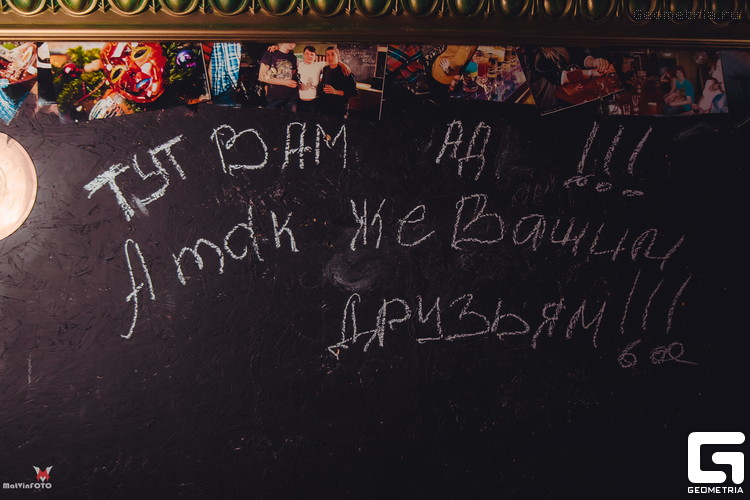 Geometria.ru
ТУТ ВАМ АД !!!
А так же Вашим
друзьям !!!
MatVinFOTO
GEOMETRIA